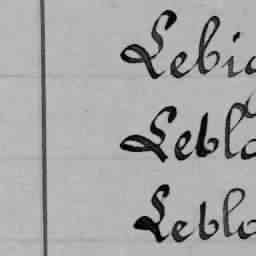 Lebia
Leblo
Leblo